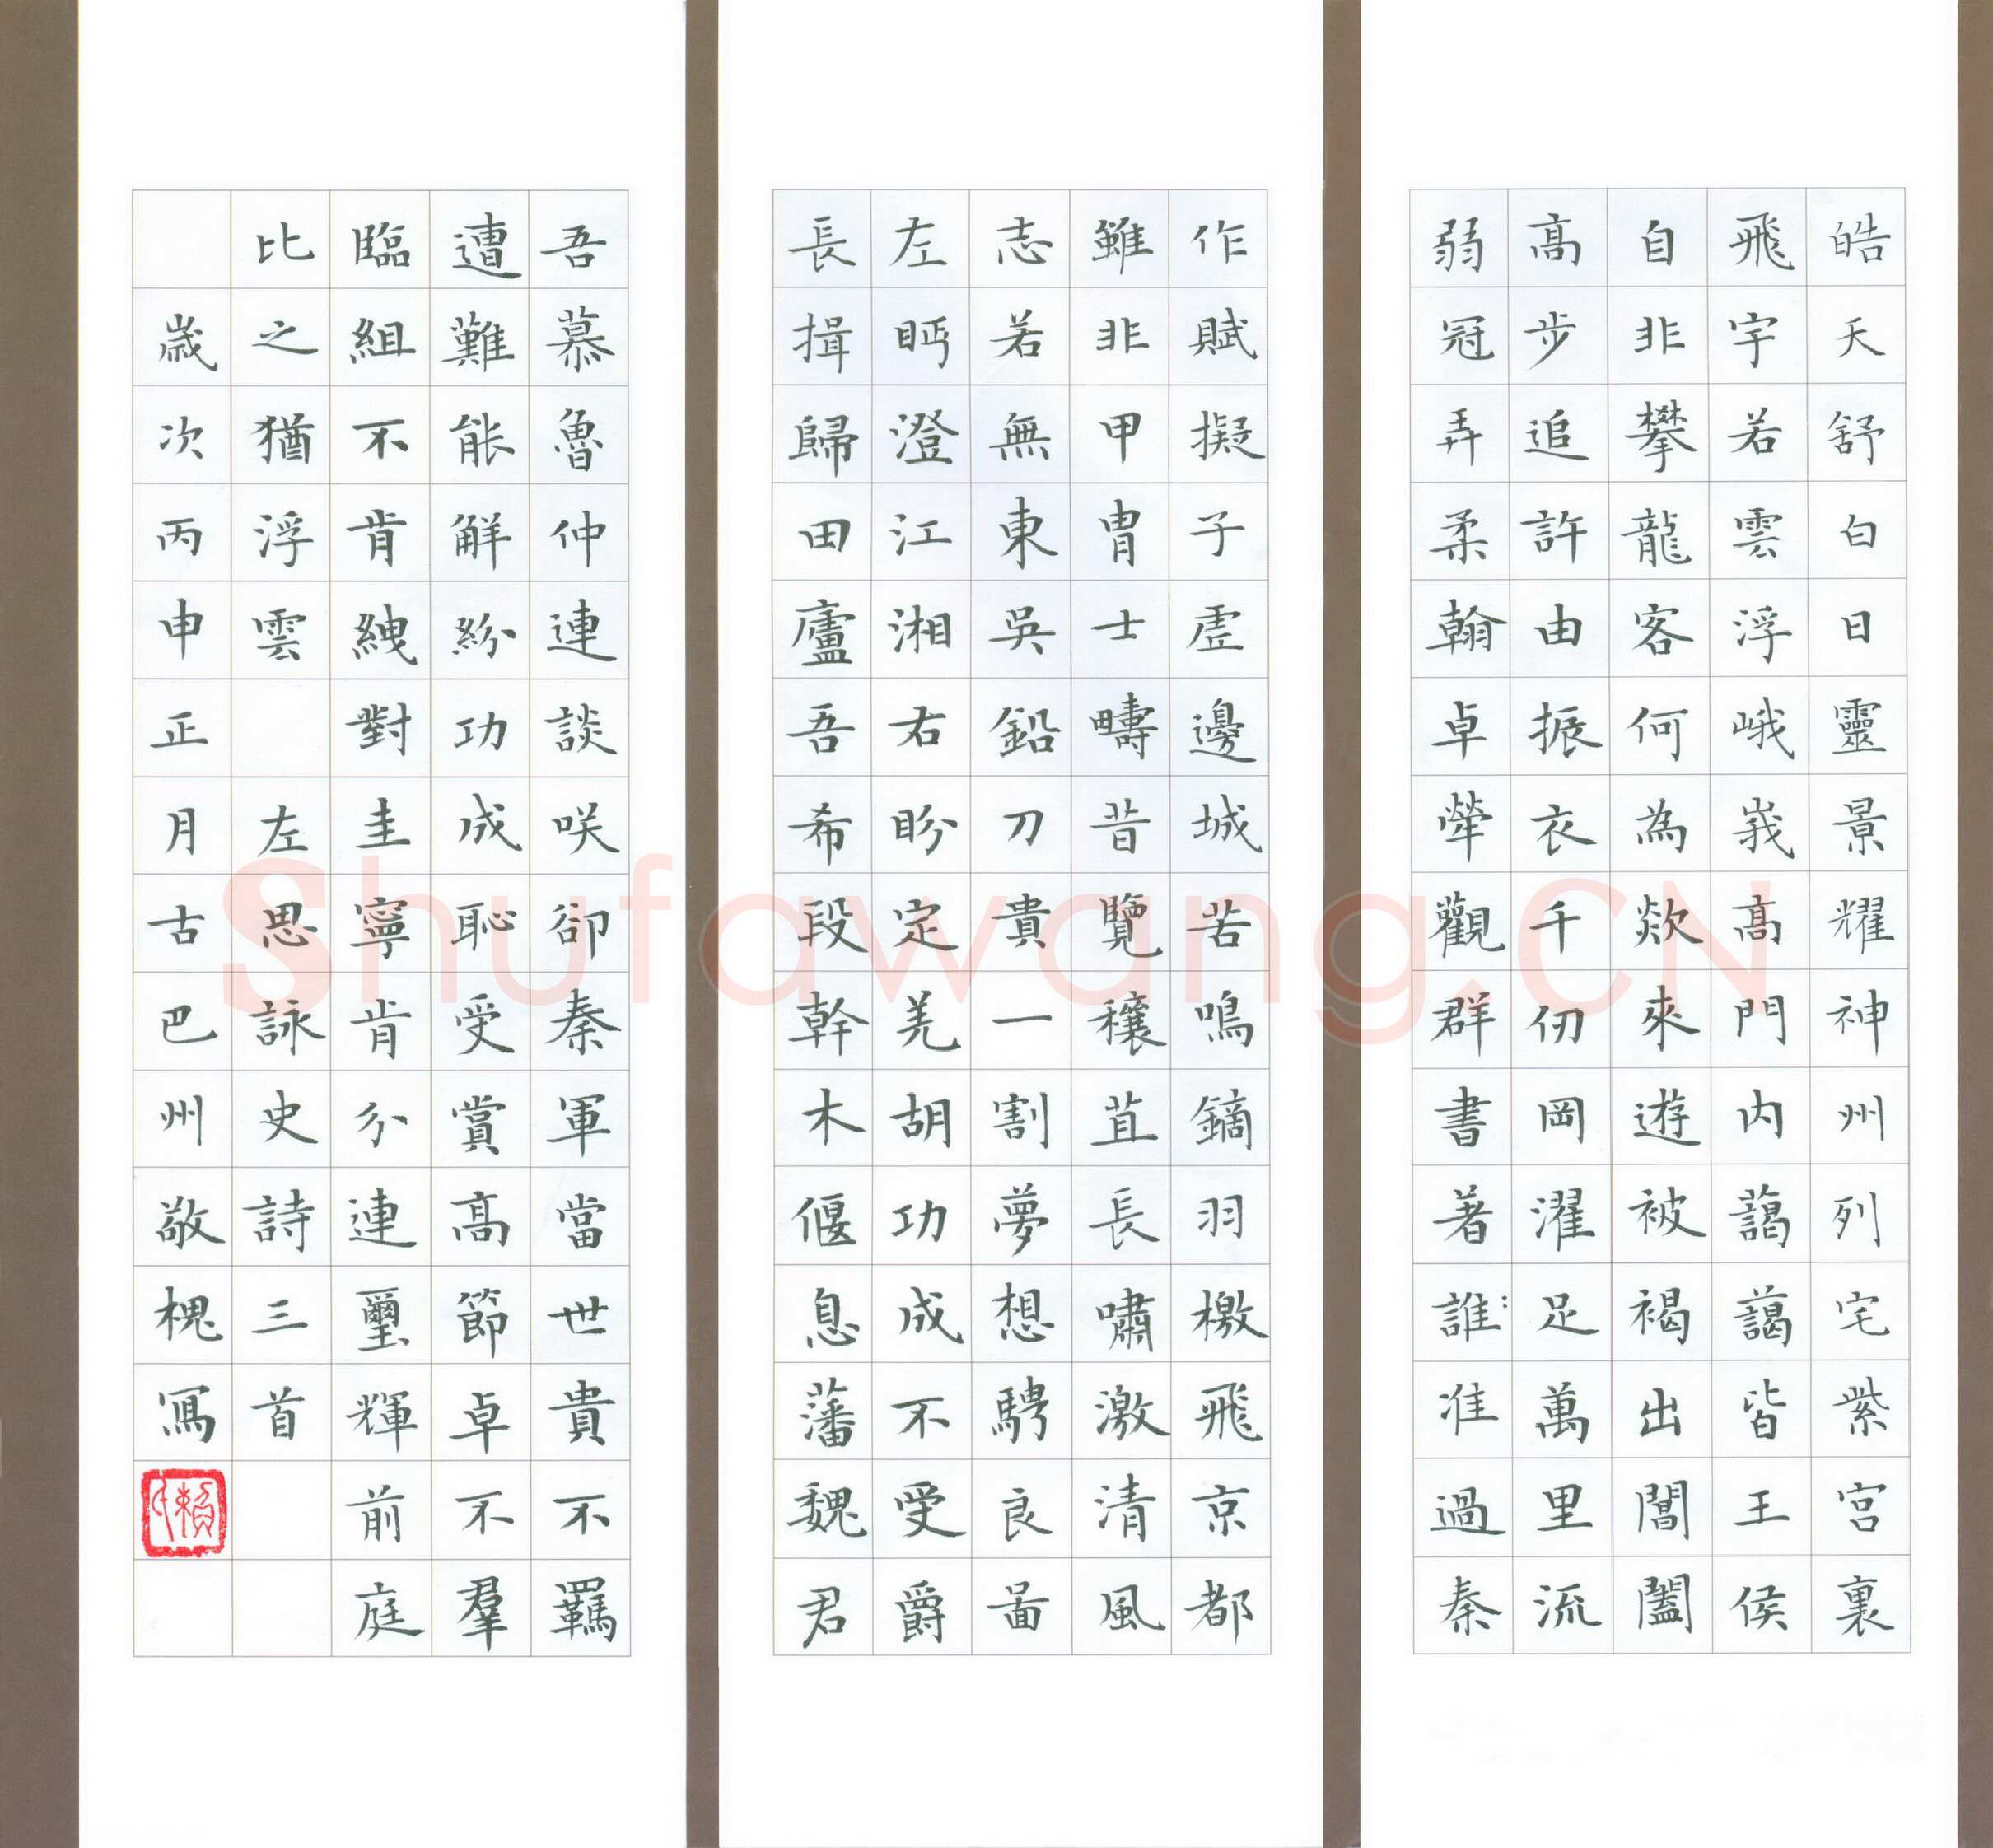 皓天舒白日靈景耀神州列宅紫宮裏
飛宇若雲浮峨峩高門內藹藹皆王侯
自非攀龍客何為欻來遊被褐出閶闔
高步追許由振衣千仞岡濯足萬里流
弱冠弄柔翰卓犖觀群書著誰:准過秦
作賦擬子虛邊城苦鳴鏑羽檄飛京都
雖非甲冑士疇昔覽穰苴長嘯激清風
志若無東吳鉛刀貴一割夢想騁良啚
左眄澄江湘右盼定羌胡功成不受爵
長揖歸田廬吾希段幹木偃息藩魏君
吾慕魯仲連談咲卻秦軍當世貴不羈
遭難能解紛功成恥受賞高節卓不羣
臨組不肯緤對圭寧肯分連璽輝前庭
比之猶浮雲 左思詠史詩三首
歲次丙申正月古巴州敬槐寫
Shufawang.CN